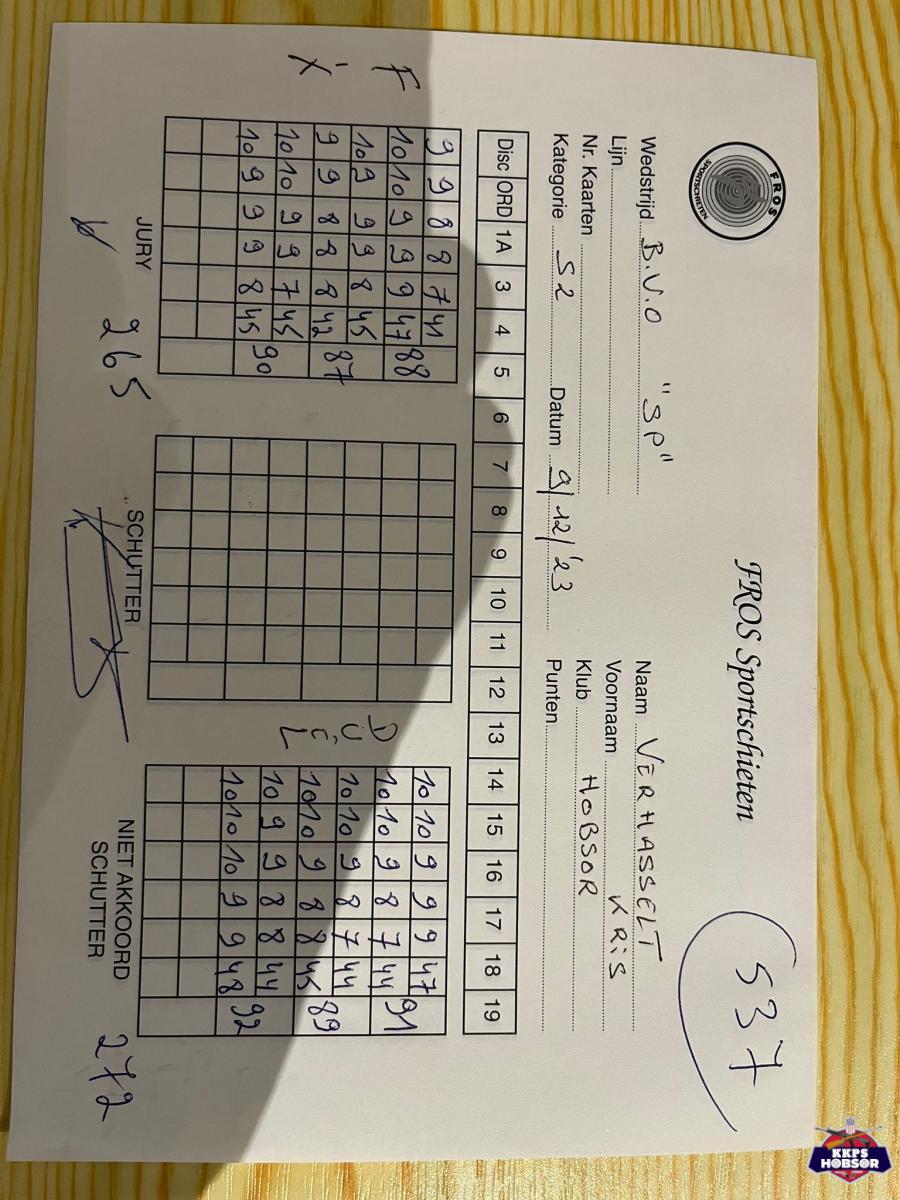 FROS
SPORTSCHIETEN
FROS Sportschieten
537
Wedstrijd B.V.O "SP"
Lijn
Nr. Kaarten
Kategorie S2 Datum 9/12/'23
Naam VERHASSELT
Voornaam KRIS
Klub HOBSOR
Punten
Disc ORD 1A 3 4 5 6 7 8 9 10 11 12 13 14 15 16 17 18 19
9 9 8 8 7 41
10 10 9 9 9 47 88
10 9 9 9 8 45
9 9 8 8 8 42 87
10 10 9 9 7 45
10 9 9 9 8 45 90
DUEL
10 10 9 9 9 47
10 10 9 8 7 44 91
10 10 9 8 7 44
10 10 9 8 8 45 89
10 9 9 8 8 44
10 10 10 9 9 48 92
JURY
265
SCHUTTER
NIET AKKOORD
SCHUTTER
272
KKPS
HOBSOR